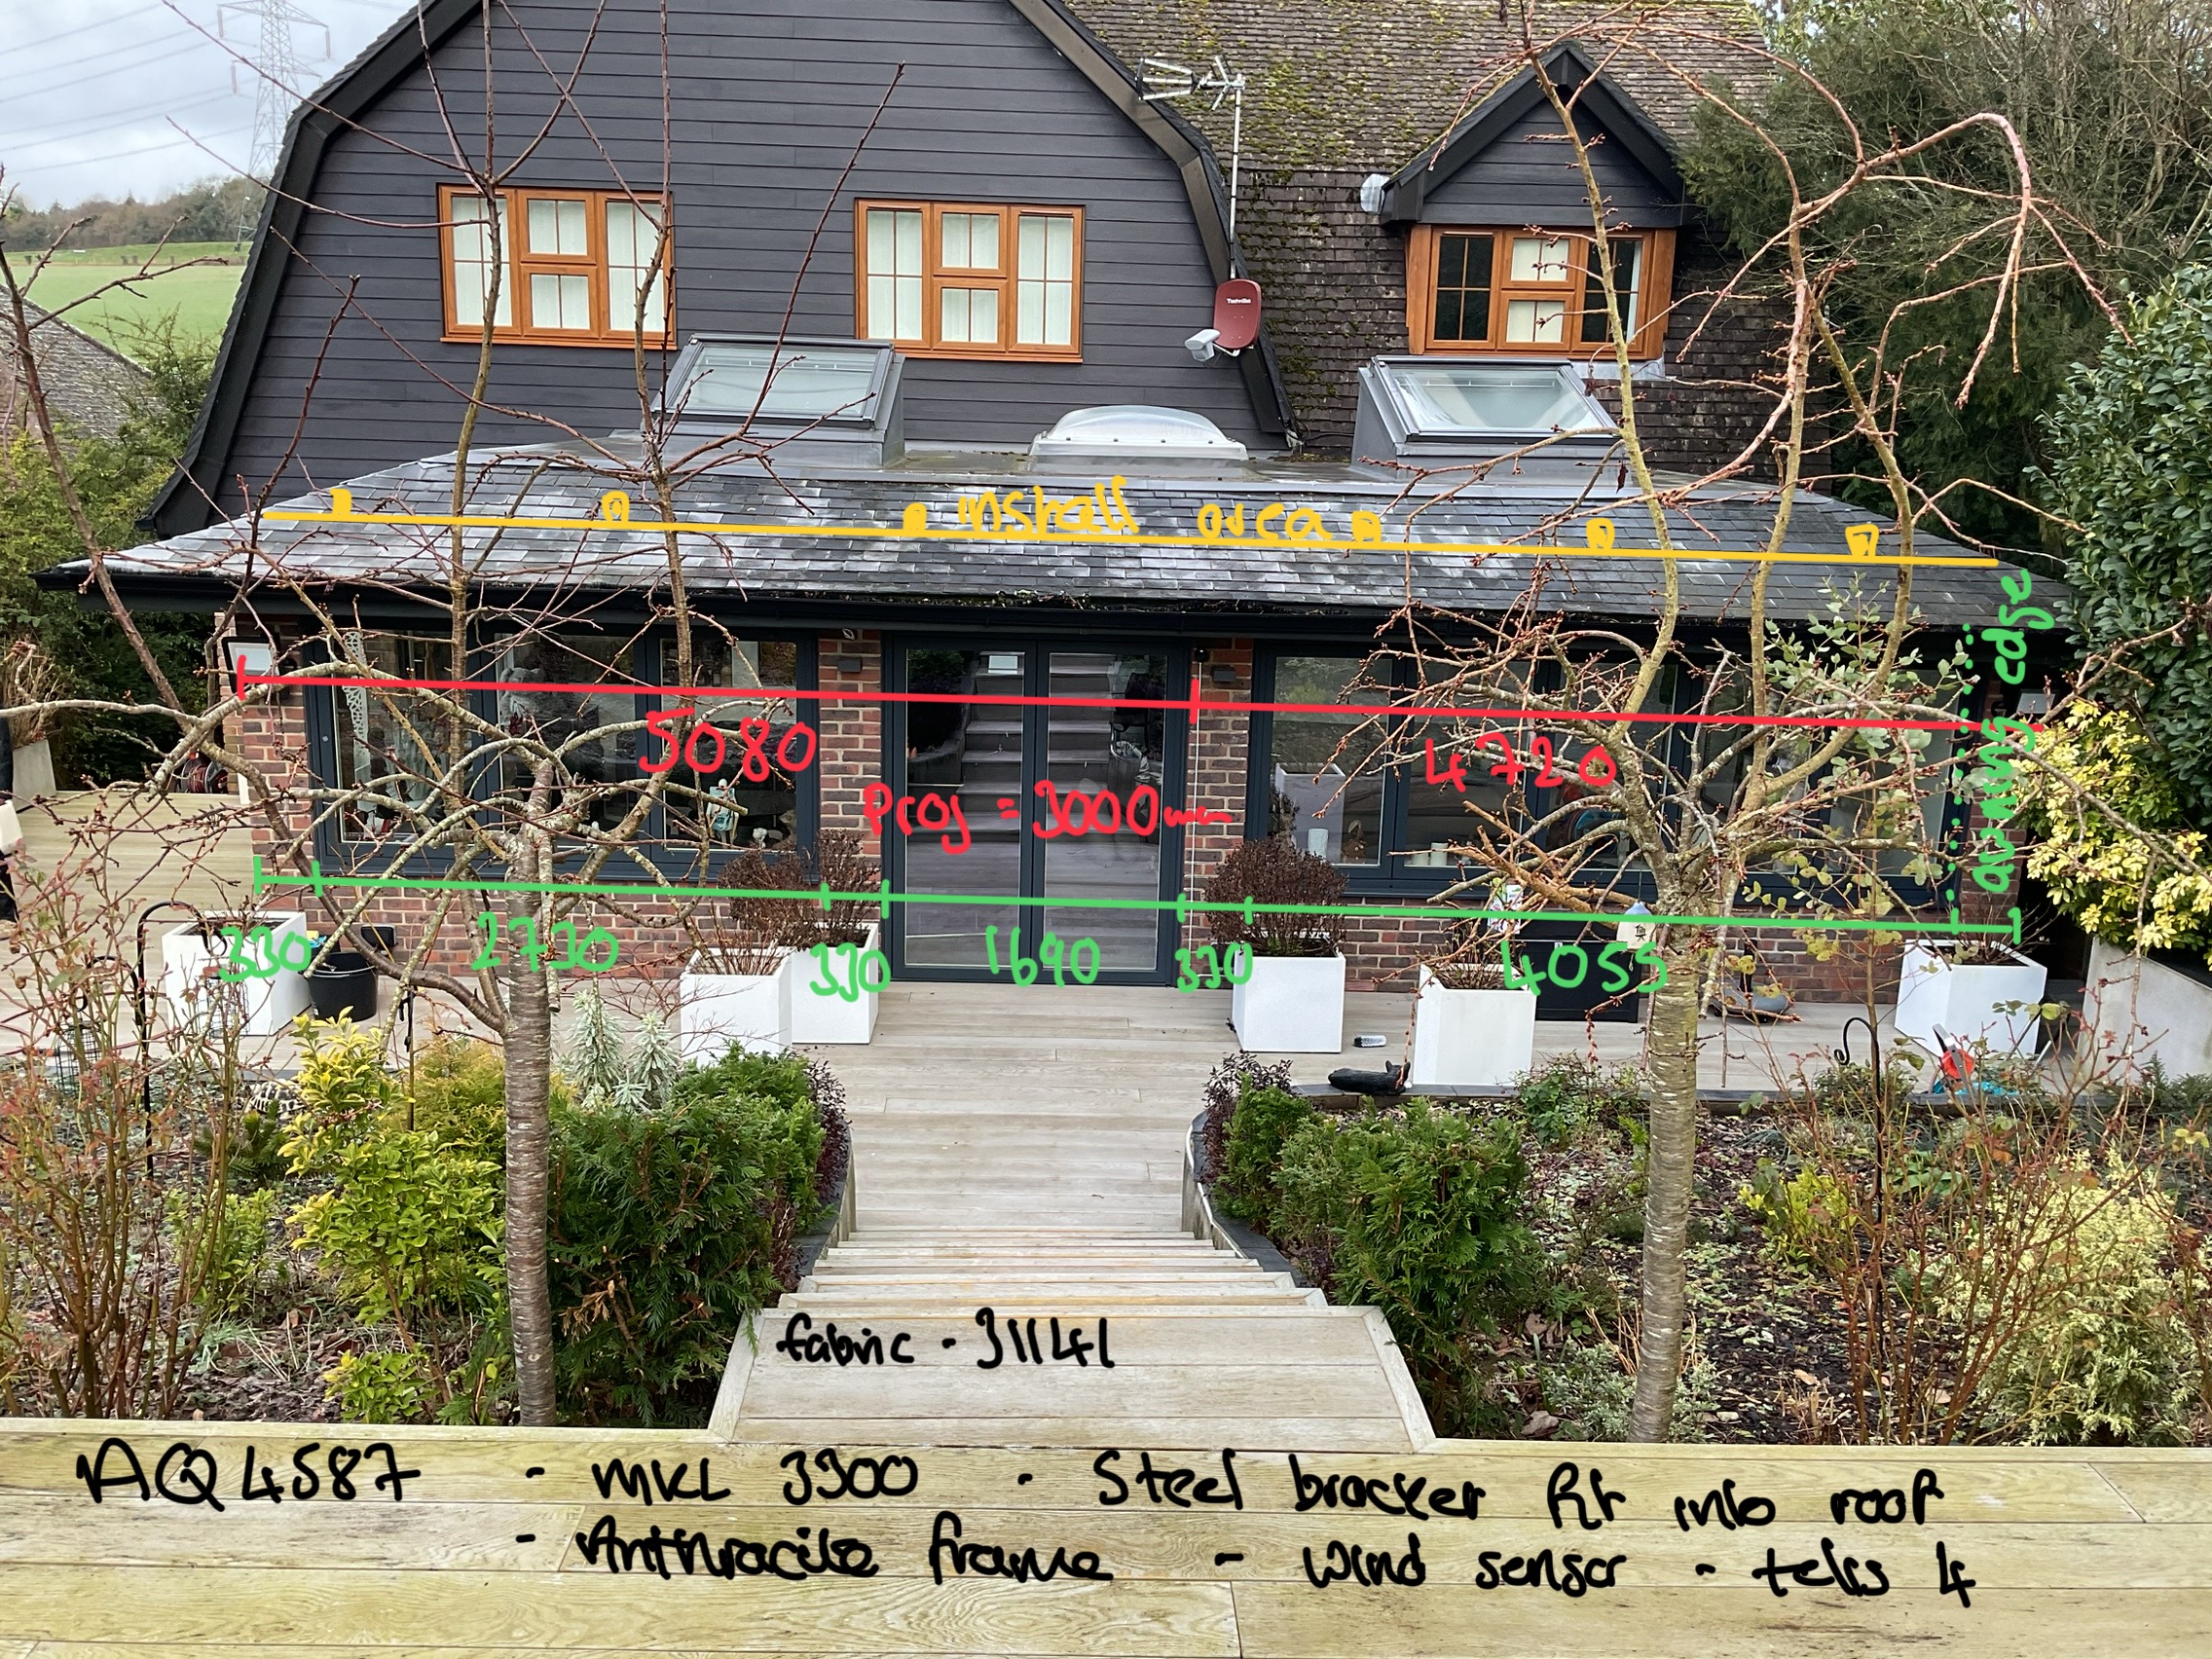 install area
awning edge
5080
4720
Proj = 3000mm
330
2730
330
1690
330
4055
fabric - 31141
AQ4587 - MKL 3300 - Steel bracket fit into roof
- Anthracite frame - Wind sensor - telis 4